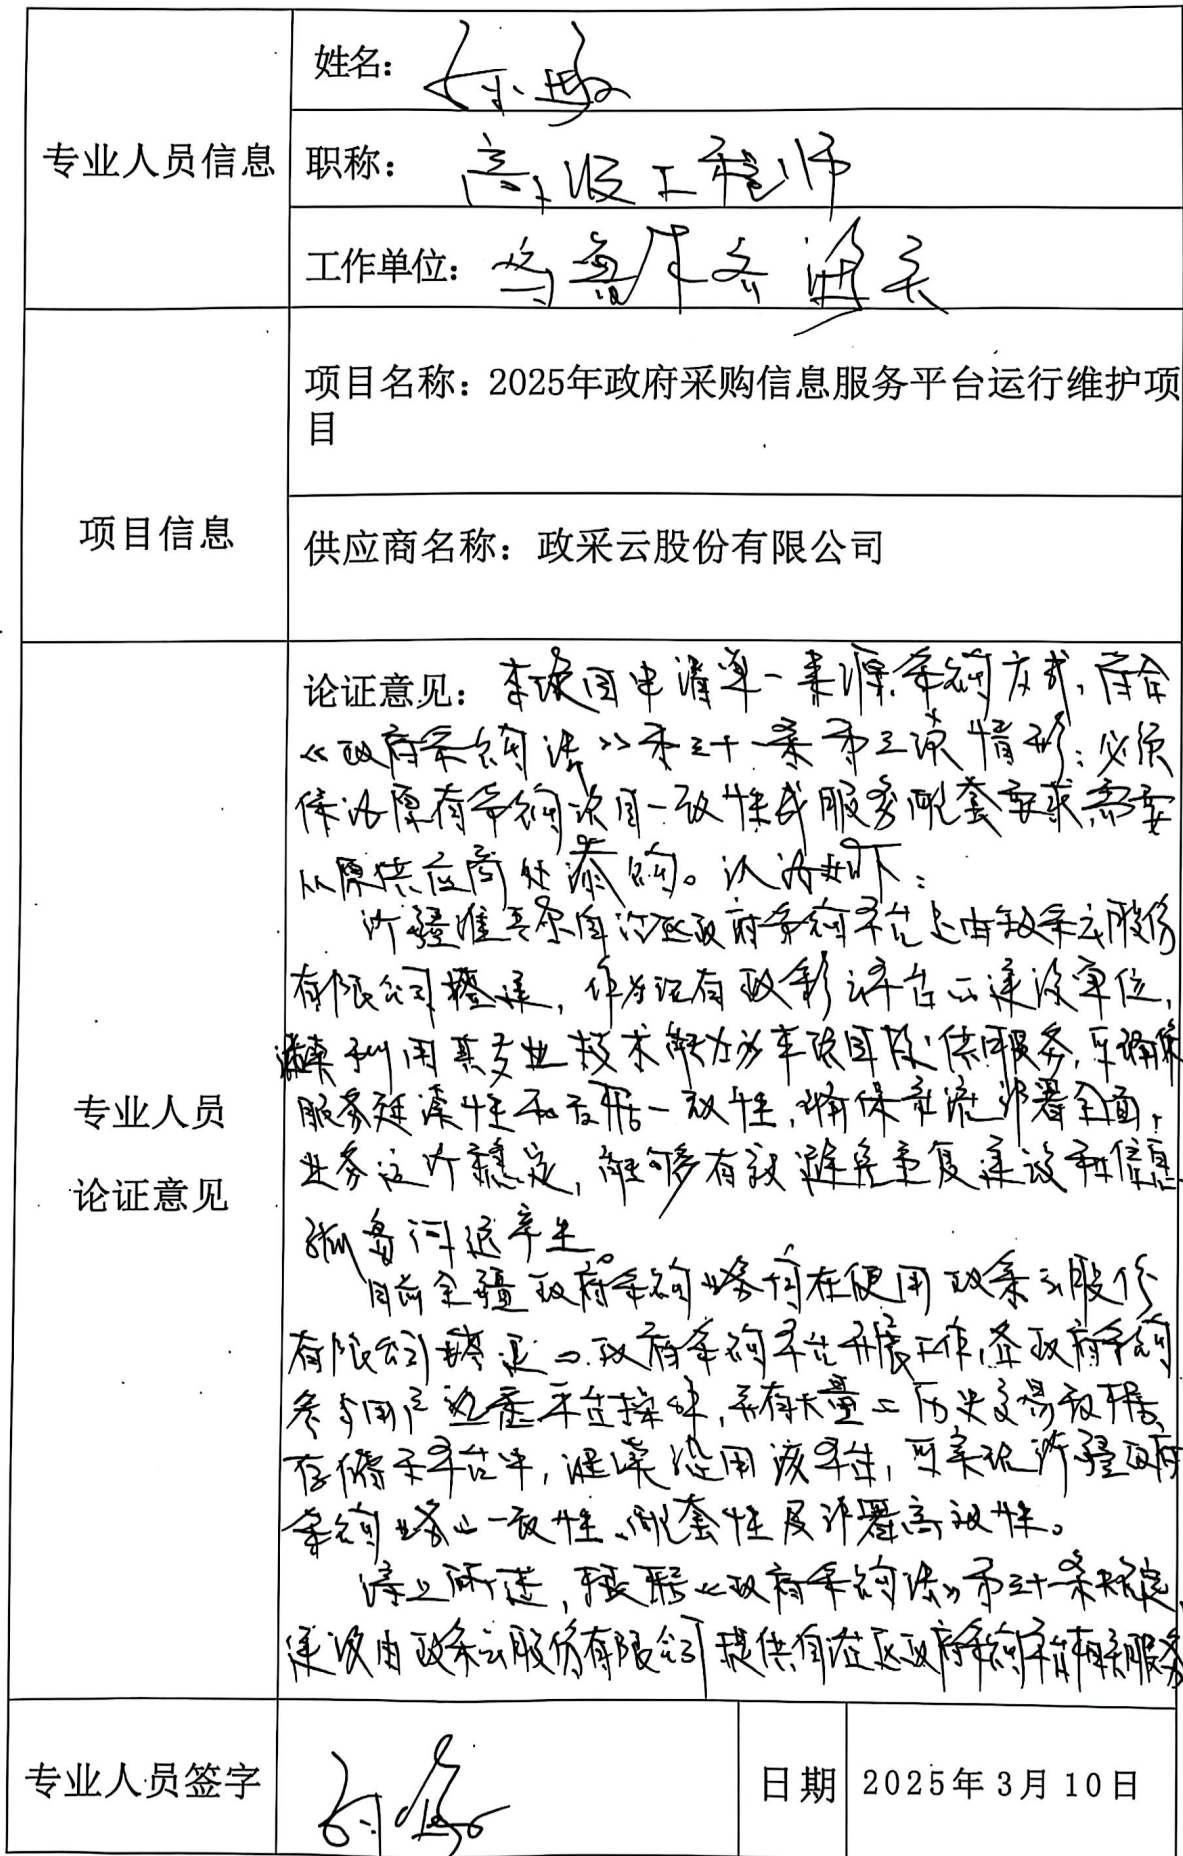 姓名：
专业人员信息
职称：高级工程师
工作单位：乌鲁木齐海关
项目名称：2025年政府采购信息服务平台运行维护项
目
项目信息
供应商名称：政采云股份有限公司
论证意见：本项目申请单一来源采购方式，符合
《政府采购法》第三十一条第三项情形：必须
保证原有采购项目一致性或服务配套要求需要
从原供应商处添购。认为如下：
新疆维吾尔自治区政府采购平台是由政采云股份
有限公司搭建，作为现有政采云平台的建设单位，
利用其专业技术能力为本项目提供服务，可确保
服务延续性和数据一致性，确保系统部署全面，
业务运行稳定，能够有效避免重复建设和信息
孤岛问题产生。
目前全疆政府采购业务均在使用政采云股份
有限公司搭建的政府采购平台开展工作，各政府采购
参与用户熟悉平台操作，并有大量的历史交易数据
存储于平台中，继续沿用该平台，可实现新疆政府
采购业务的一致性、配套性及部署高效性。
专业人员
论证意见
综上所述，根据《政府采购法》第三十一条规定，
建议由政采云股份有限公司提供自治区政府采购平台相关服务
专业人员签字
日期
2025年3月10日